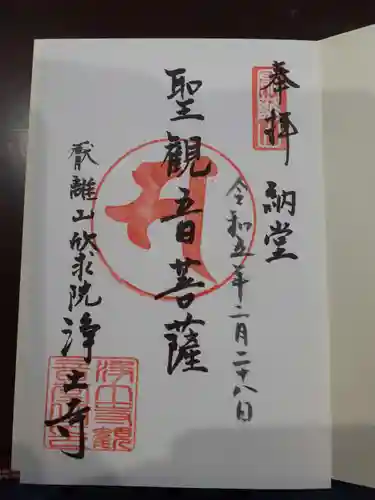 奉拝
納堂
令和五年二月二十八日
聖観音菩薩
厭離山欣求院
浄土寺